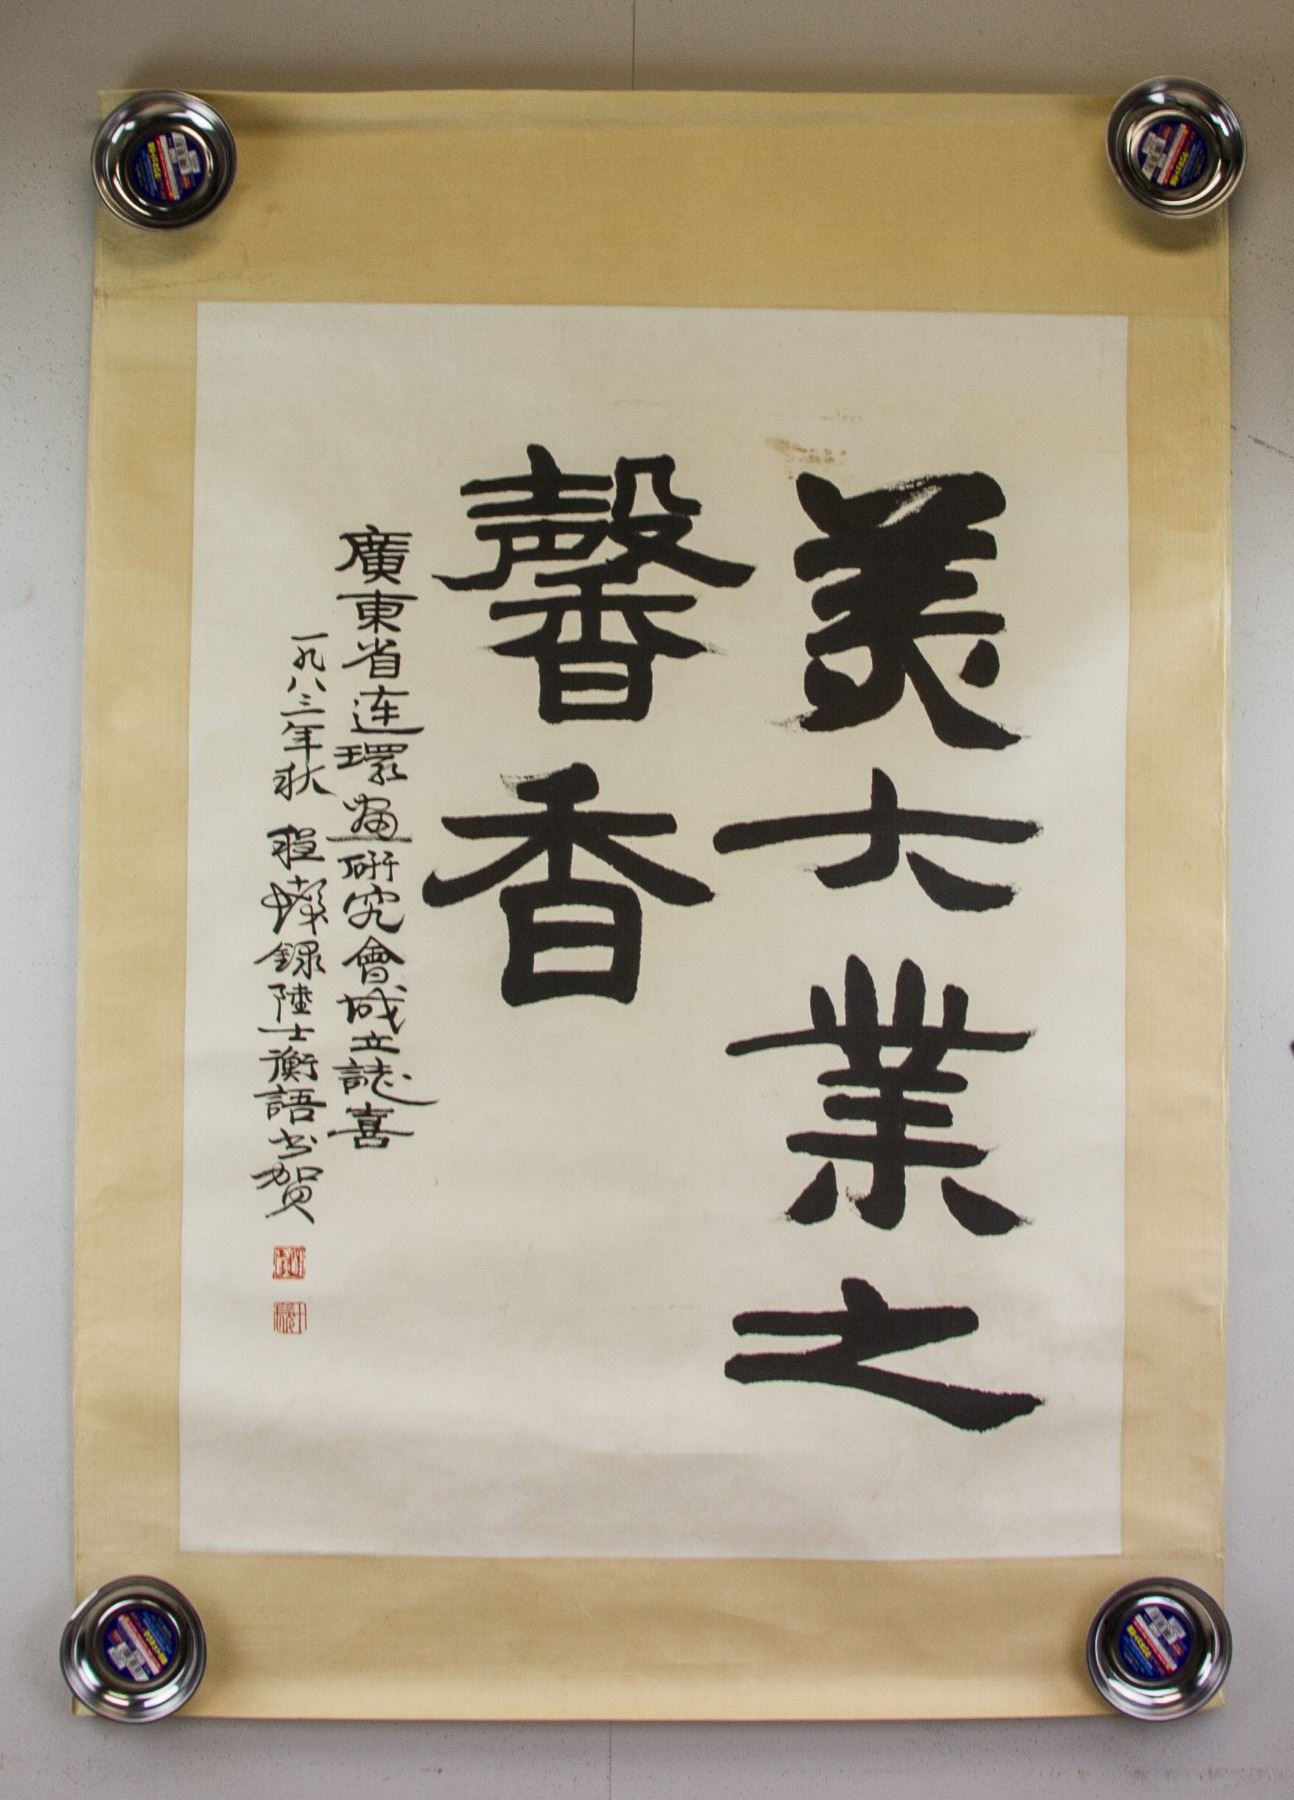 美大業之
馨香
廣東省连環畫研究會成立誌喜
一九八三年秋 程 錄陸士衡語书贺